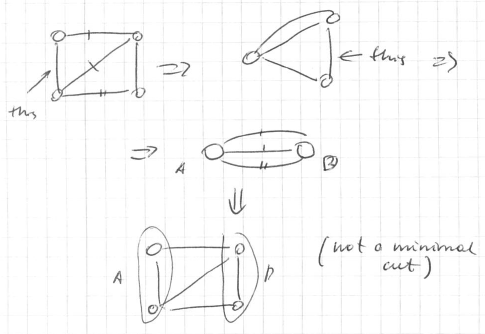 this
⇒
← this ⇒
⇒
A B
⇓
A B
(not a minimal
cut)